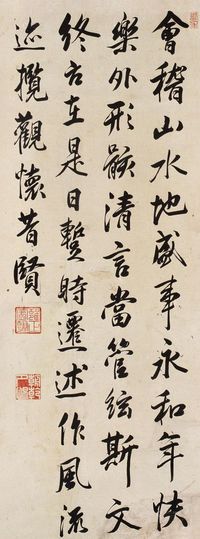 會稽山水地盛事永和年快
樂外形骸清言當管絃斯文
終古在是日暫時遷述作風流
迹攬觀懷昔賢